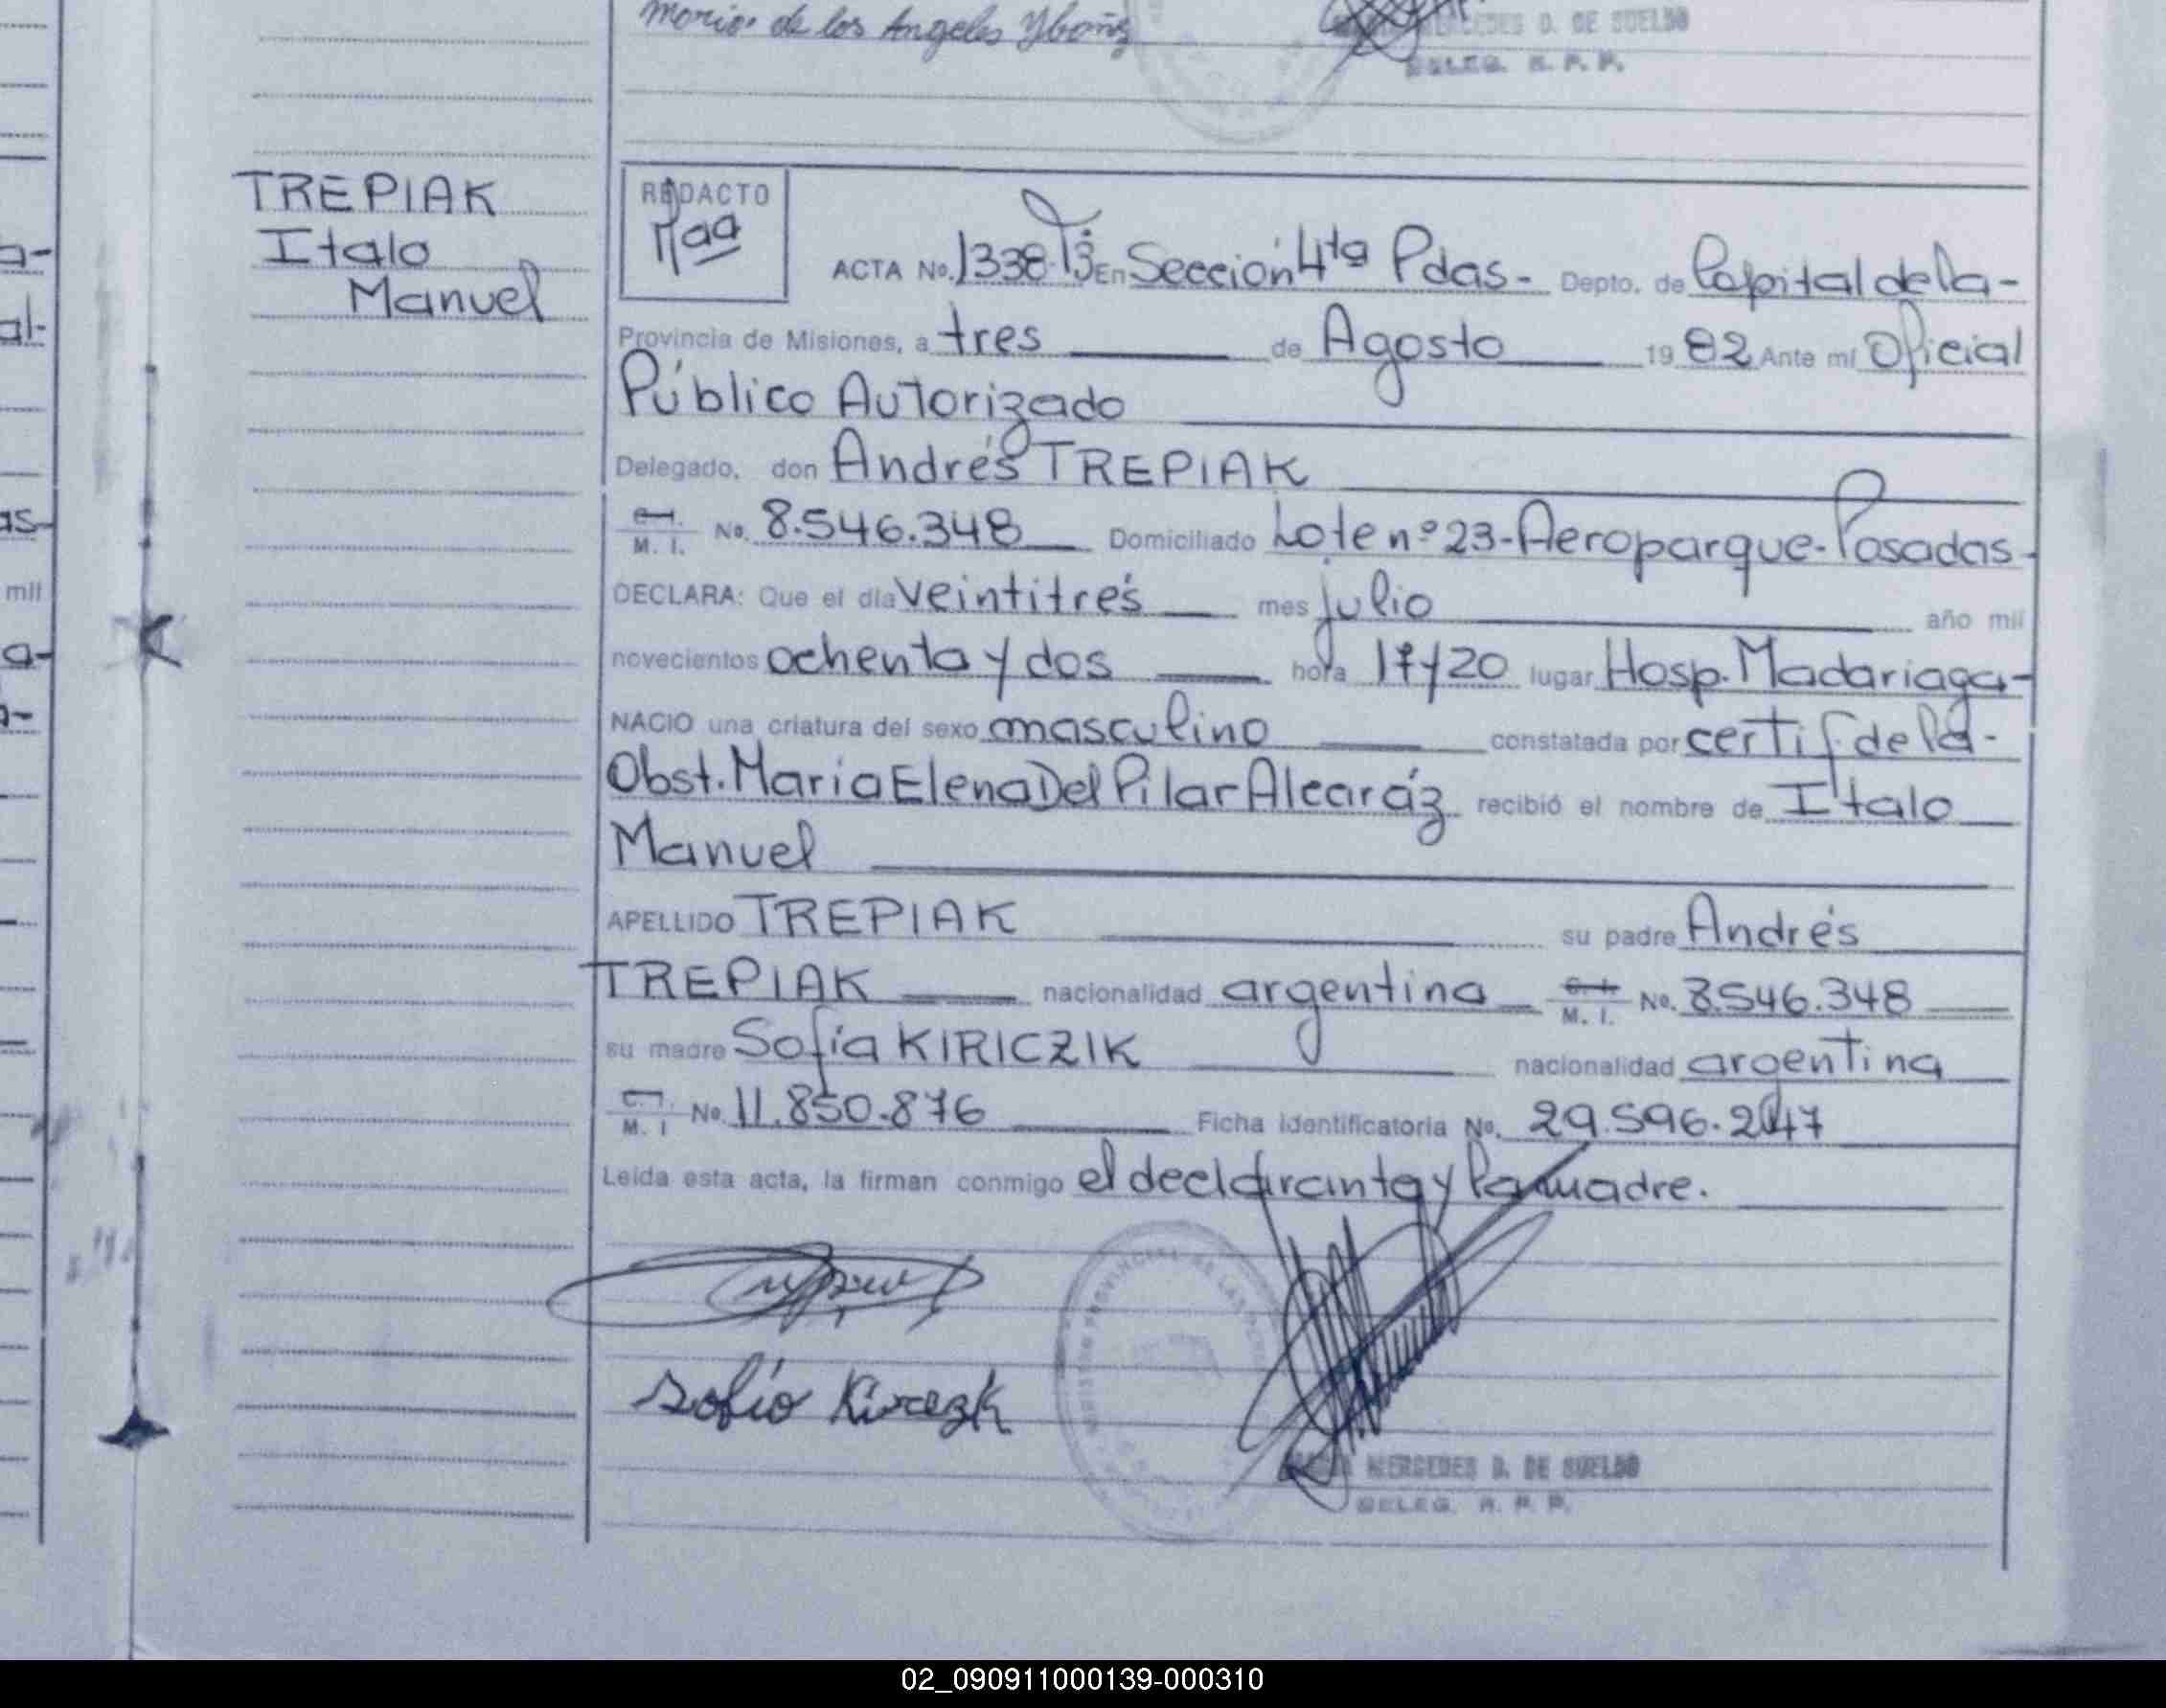 Maria de los Angeles Ybañez
MERCEDES D. DE SUELDO
DELEG. R. P. P.
TREPIAK
Italo
Manuel
REDACTO
ACTA No. 1338 T3 En Sección 4ta Pdas- Depto. de Capital de la-
Provincia de Misiones, a tres de Agosto 19 82 Ante mí Oficial
Público Autorizado
Delegado, don Andrés TREPIAK
C.I. M. I. No. 8.546.348 Domiciliado Lote nº 23-Aeroparque-Posadas-
DECLARA: Que el día veintitrés mes julio año mil
novecientos ochenta y dos hora 17y20 lugar Hosp. Madariaga-
NACIO una criatura del sexo masculino constatada por certif de la-
Obst. Maria Elena Del Pilar Alcaráz recibió el nombre de Italo
Manuel
APELLIDO TREPIAK su padre Andrés
TREPIAK nacionalidad argentina C.I. M. I. No. 8.546.348
su madre Sofía KIRICZIK nacionalidad argentina
C.I. M. I No. 11.850.876 Ficha identificatoria No. 29.596.247
Leída esta acta, la firman conmigo el declarante y la madre.
MERCEDES D. DE SUELDO
DELEG. R. P. P.
02_090911000139-000310